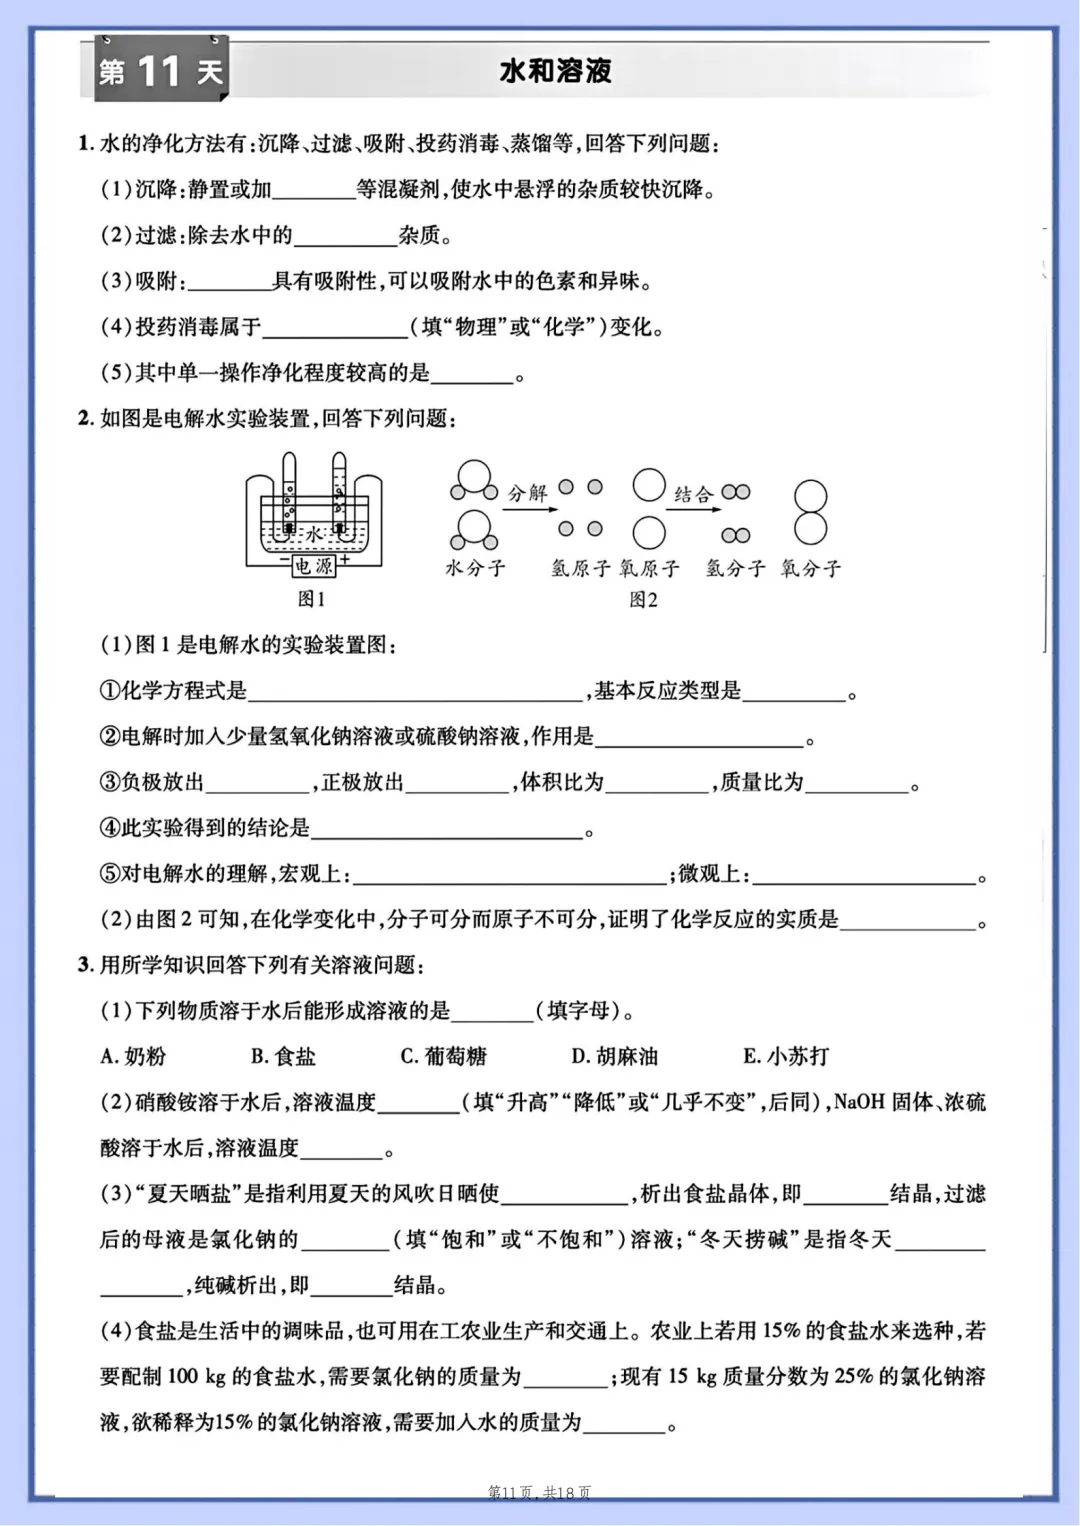 第 11 天
水和溶液
1. 水的净化方法有:沉降、过滤、吸附、投药消毒、蒸馏等,回答下列问题:
(1)沉降:静置或加________等混凝剂,使水中悬浮的杂质较快沉降。
(2)过滤:除去水中的__________杂质。
(3)吸附:________具有吸附性,可以吸附水中的色素和异味。
(4)投药消毒属于______________(填“物理”或“化学”)变化。
(5)其中单一操作净化程度较高的是________。
2. 如图是电解水实验装置,回答下列问题:
分解 结合
水
- 电源 +
水分子 氢原子 氧原子 氢分子 氧分子
图1 图2
(1)图 1 是电解水的实验装置图:
①化学方程式是________________________________,基本反应类型是__________。
②电解时加入少量氢氧化钠溶液或硫酸钠溶液,作用是____________________。
③负极放出__________,正极放出__________,体积比为__________,质量比为__________。
④此实验得到的结论是__________________________。
⑤对电解水的理解,宏观上:______________________________;微观上:_____________________。
(2)由图 2 可知,在化学变化中,分子可分而原子不可分,证明了化学反应的实质是_____________。
3. 用所学知识回答下列有关溶液问题:
(1)下列物质溶于水后能形成溶液的是________(填字母)。
A. 奶粉 B. 食盐 C. 葡萄糖 D. 胡麻油 E. 小苏打
(2)硝酸铵溶于水后,溶液温度________(填“升高”“降低”或“几乎不变”,后同),NaOH 固体、浓硫
酸溶于水后,溶液温度________。
(3)“夏天晒盐”是指利用夏天的风吹日晒使____________,析出食盐晶体,即________结晶,过滤
后的母液是氯化钠的________(填“饱和”或“不饱和”)溶液;“冬天捞碱”是指冬天________
________,纯碱析出,即________结晶。
(4)食盐是生活中的调味品,也可用在工农业生产和交通上。农业上若用 15% 的食盐水来选种,若
要配制 100 kg 的食盐水,需要氯化钠的质量为________;现有 15 kg 质量分数为 25% 的氯化钠溶
液,欲稀释为15% 的氯化钠溶液,需要加入水的质量为________。
第11页,共18页